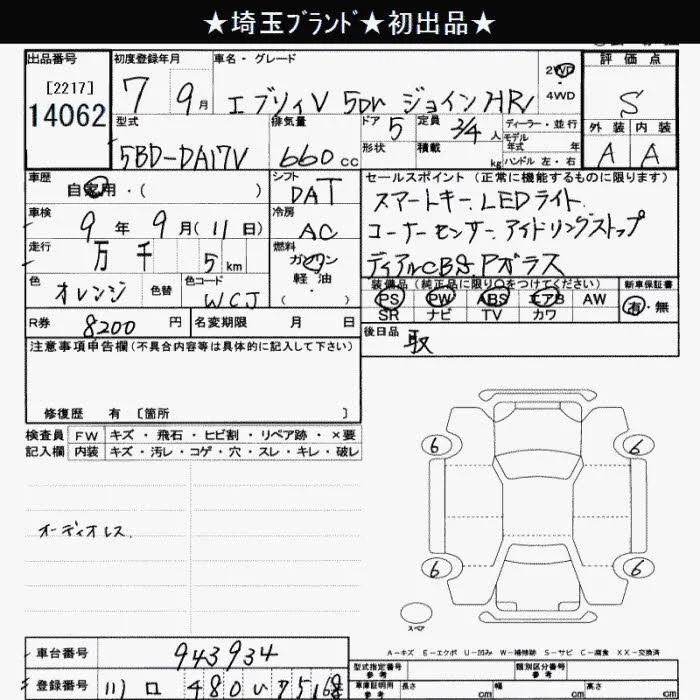 ★埼玉ﾌﾞﾗﾝﾄﾞ★初出品★
出品番号
[2217]
14062
初度登録年月
7 9月
車名・グレード
エブリィV 5Dr ジョインHR
2WD
4WD
評価点
S
外装 内装
A A
型式
5BD-DA17V
排気量
660cc
ドア 5
形状
定員 2/4人
積載 kg
ディーラー・並行
モデル年式 年
ハンドル 左・右
車歴
自家用・( )
シフト
DAT
車検
9年 9月(11日)
冷房
AC
走行
万千 5km
燃料
ガソリン
軽油
・
( )
色
オレンジ
色替
色コード
WCJ
R券 8200円
名変期限 月 日
セールスポイント (正常に機能するものに限ります)
スマートキー、LEDライト
コーナーセンサー、アイドリングストップ
ディアルCBS、Pガラス
装備品(純正品に限り○をつけてください)
PS PW ABS エアB AW
SR ナビ TV カワ
新車保証書
有・無
後日品
取
注意事項申告欄(不具合内容等は具体的に記入して下さい)
修復歴 有 [箇所 ]
検査員記入欄
FW キズ・飛石・ヒビ割・リペア跡・×要
内装 キズ・汚レ・コゲ・穴・スレ・キレ・破レ
オーディオレス
6 6
6 6
スペア
A-キズ E-エクボ U-凹み W-補修跡 S-サビ C-腐食 XX-交換済
車台番号 943934
登録番号 川口 480 い 7568
型式指定番号 参考
類別区分番号 参考
車庫証明用 参考
長さ cm 幅 cm 高さ cm